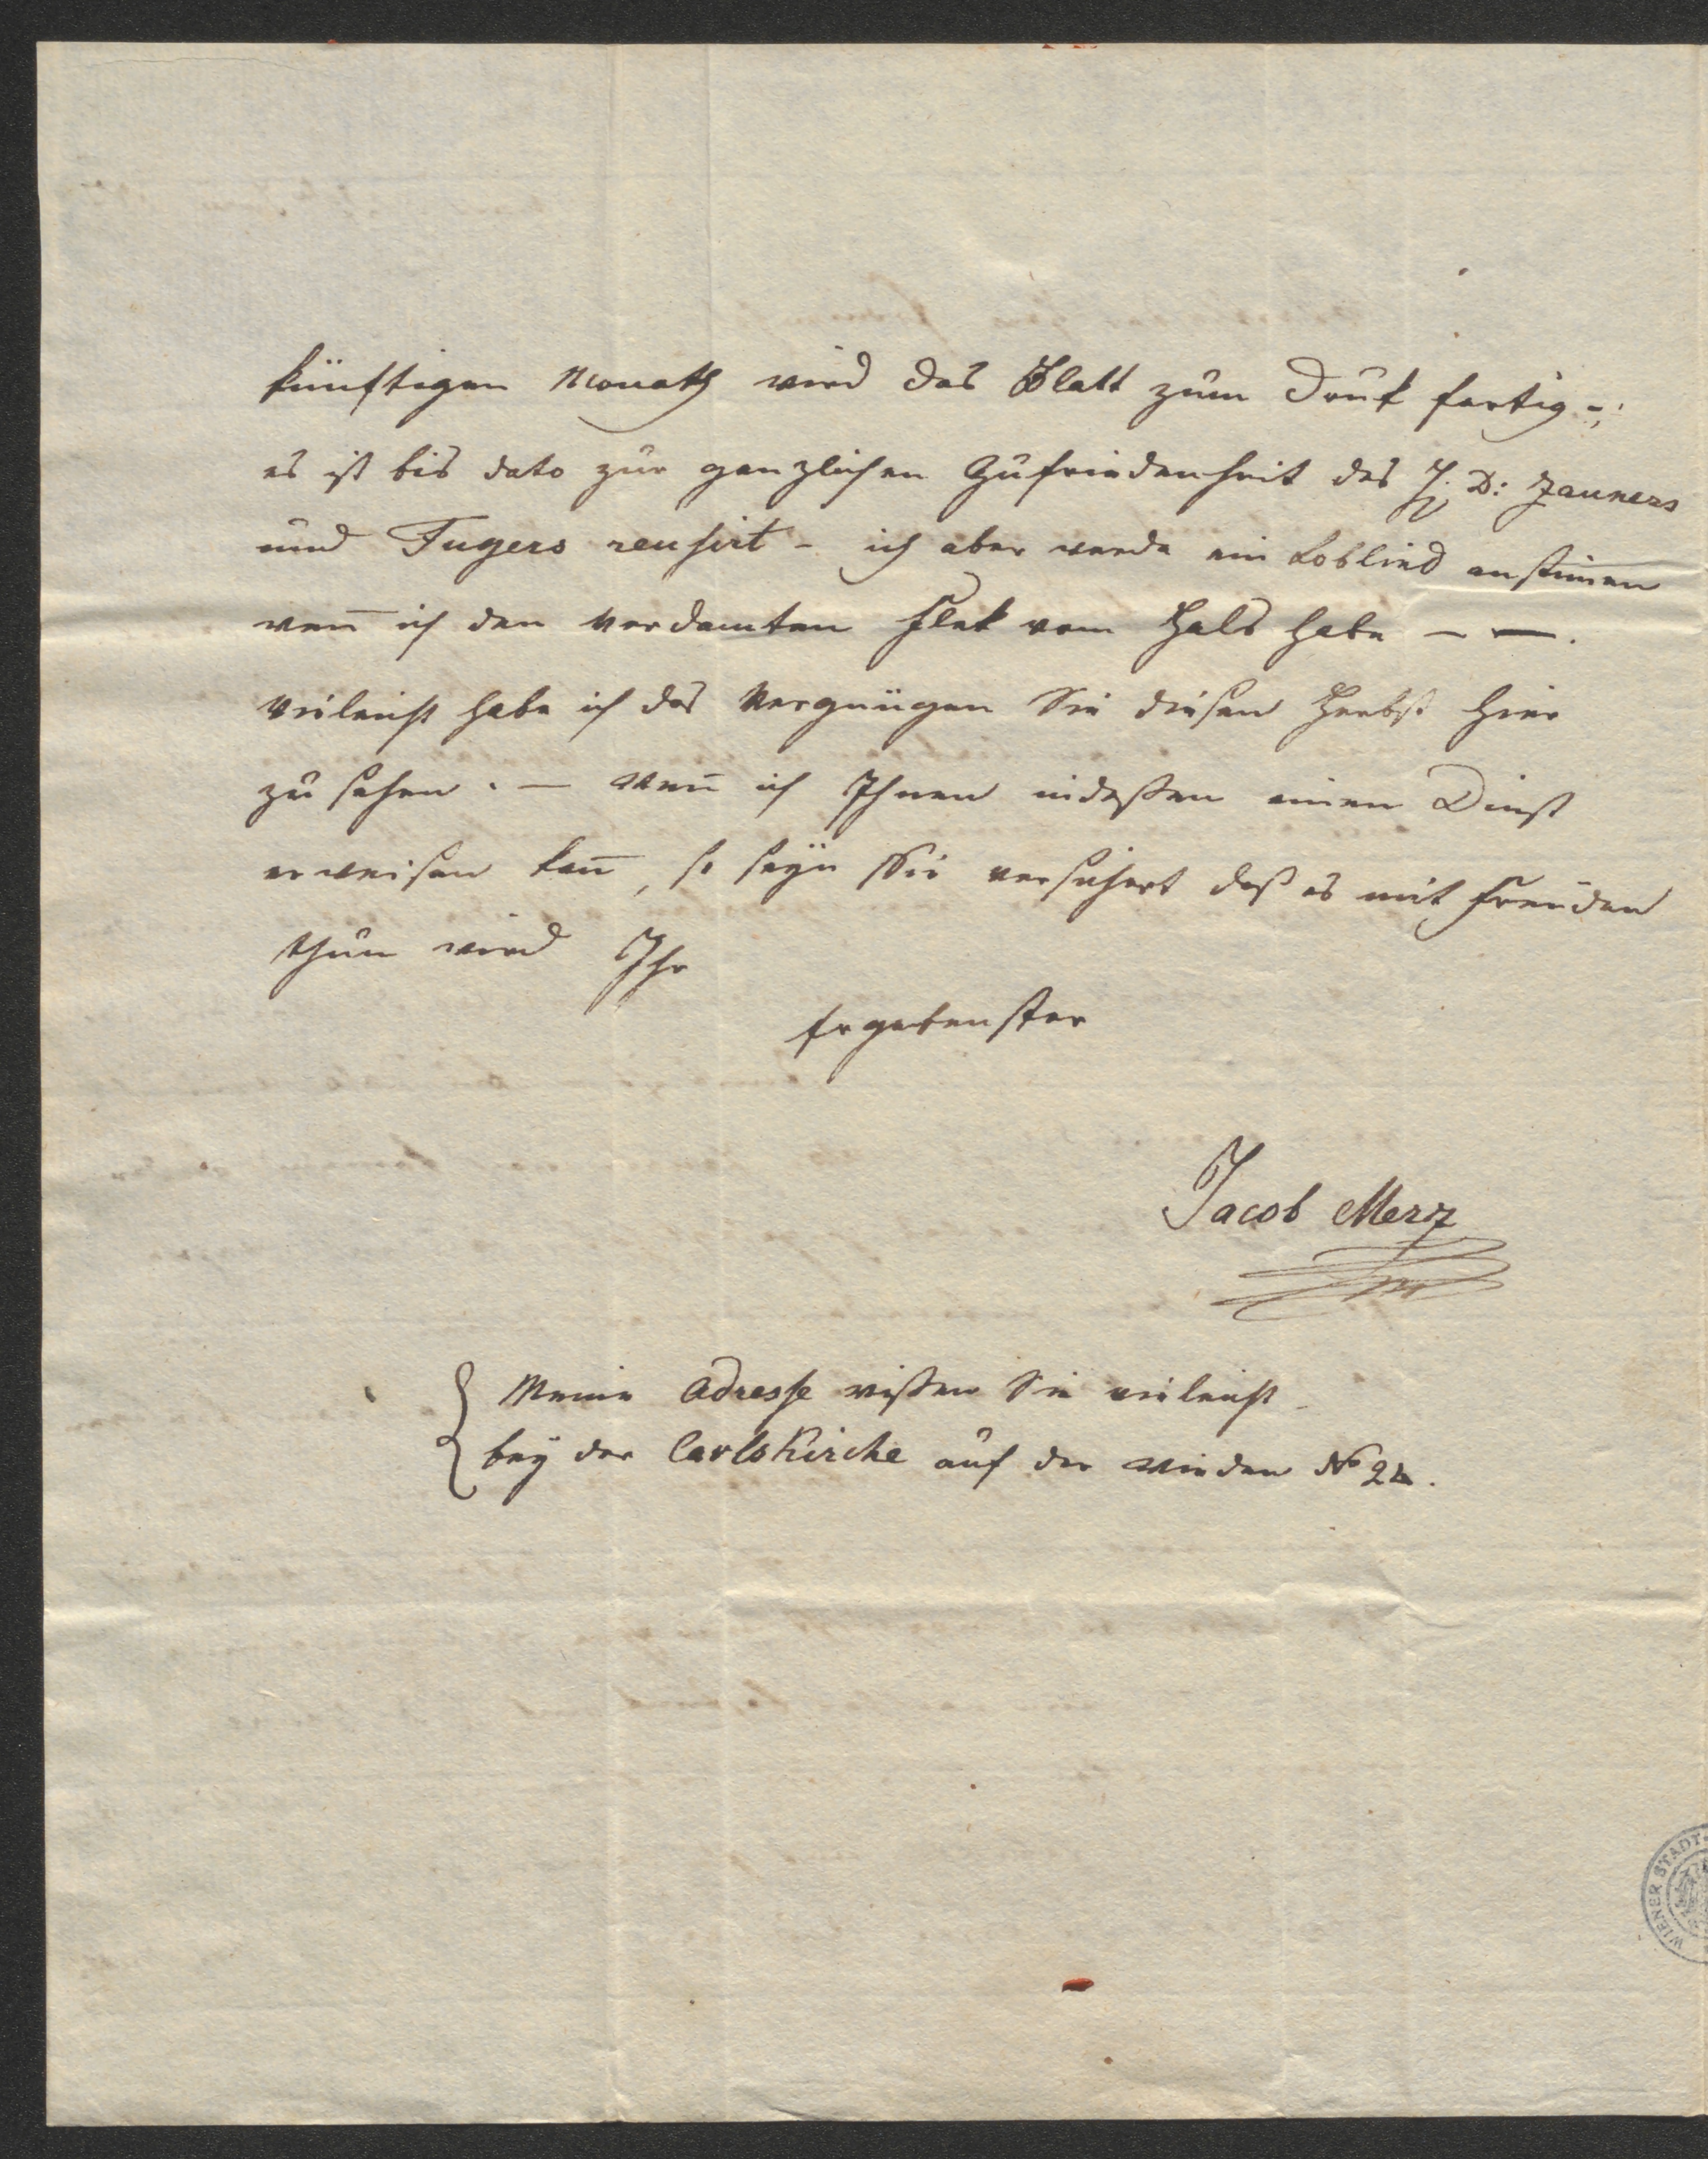 künftigen Monath wird das Blatt zum Druk fertig -;
es ist bis dato zur ganzlichen Zufriedenheit des H: D: Zauners
und Fugers reusirt - ich aber werde ein Loblied anstim̅en
wen̅ ich den verdamten Flek vom Hals habe — —.
vieleicht habe ich das Vergnügen Sie diesen Herbst hier
zu sehen. — Wen̅ ich Ihnen indeßen einen Dinst
erweisen kan̅, so seyn Sie versichert daß es mit Freuden
thun wird Ihr
Ergebenster
Jacob Merz
Meine Adresse wißen Sie vieleicht
bey der Carls Kirche auf der Wieden No 24.
WIENER STADT